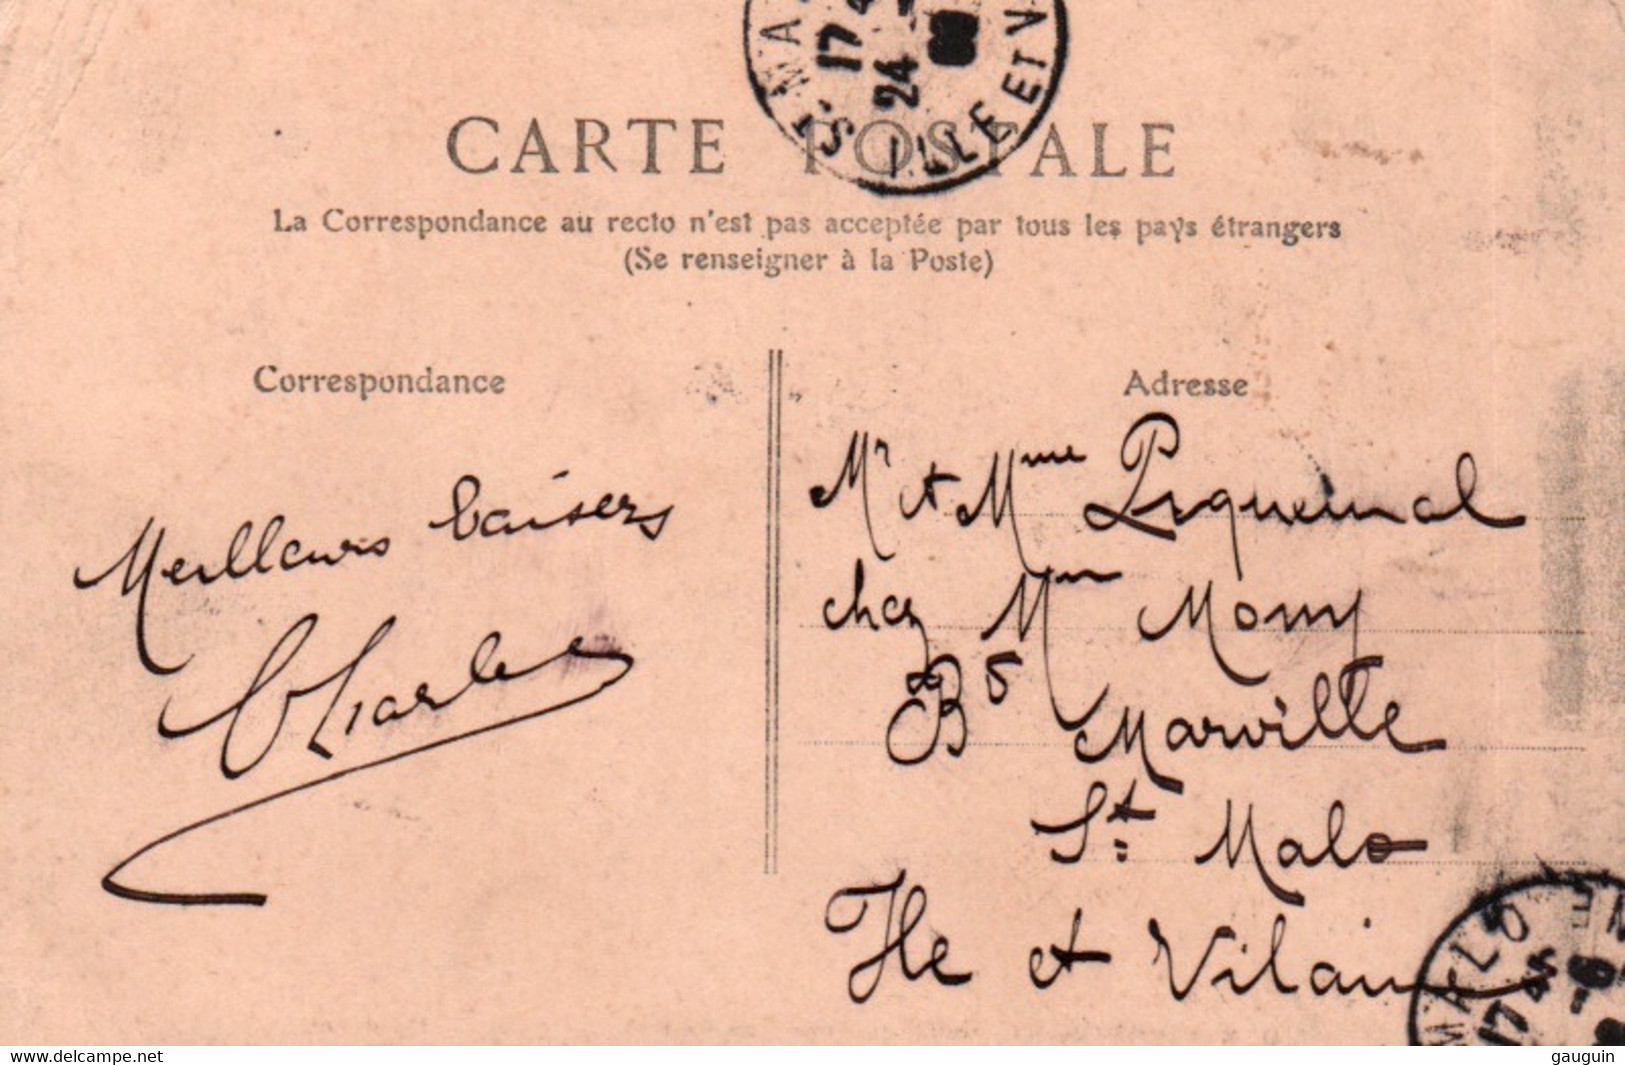 CARTE POSTALE
La Correspondance au recto n'est pas acceptée par tous les pays étrangers
(Se renseigner à la Poste)
Correspondance
Meilleurs baisers
Charles
Adresse
Mr et Mme Piqueinal
chez Mme Momy
Bd Marville
St Malo
Ille et Vilaine
ST MA
17 4
24
ILLE ET V
MALO
NE
17 45
www.delcampe.net
gauguin